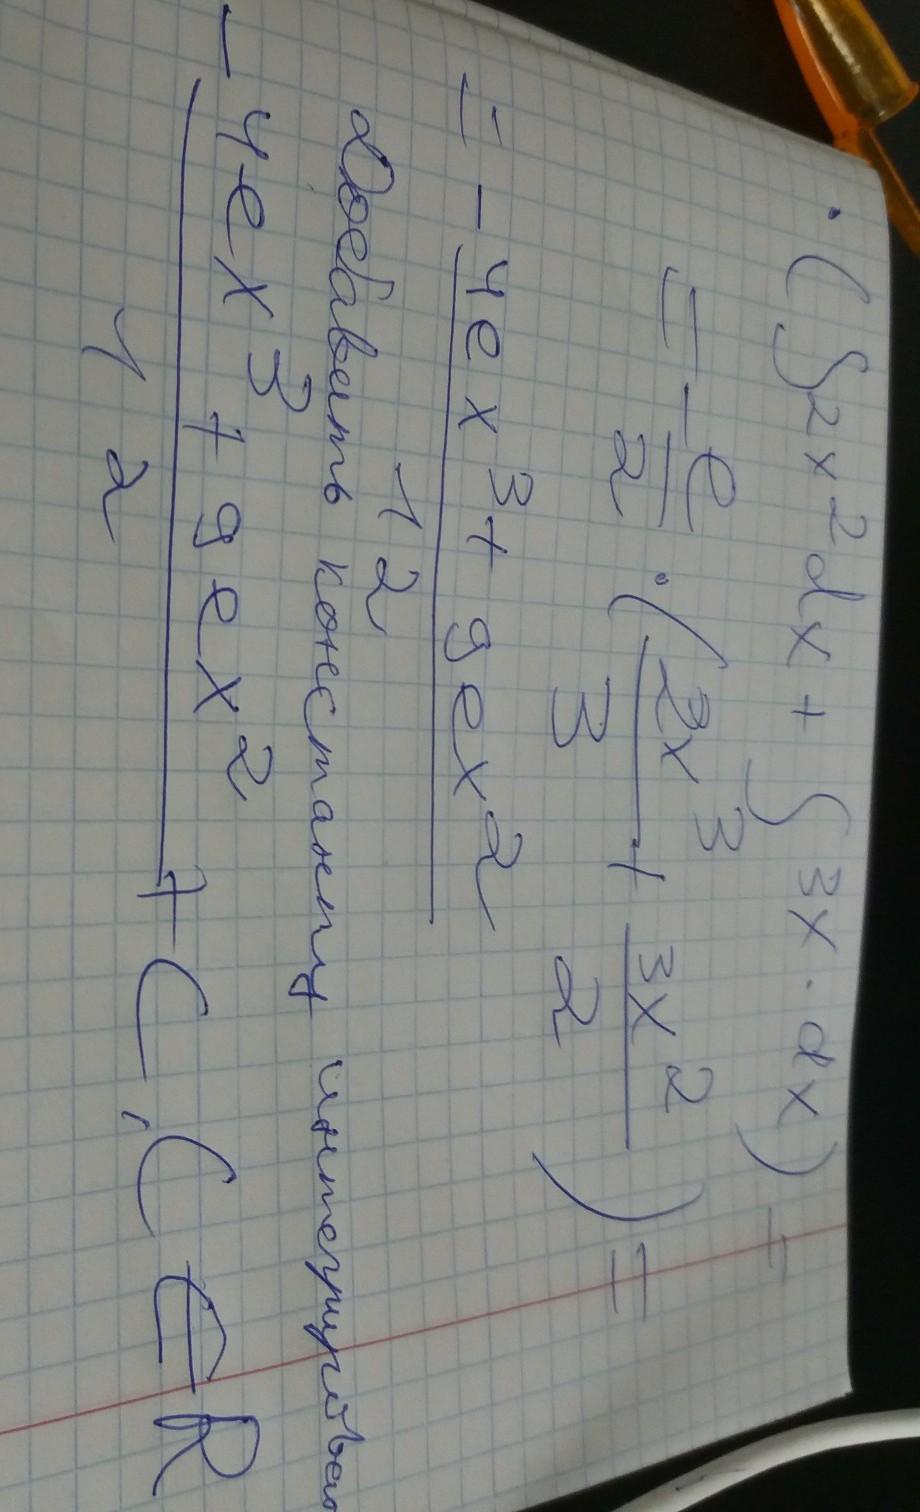 · (∫2x²dx + ∫3x · dx) =
= -e/2 · (2x³/3 + 3x²/2) =
= - 4ex³ + 9ex² / 12
Добавить константу интегрирован
- 4ex³ + 9ex² / 12 + C, C ∈ R